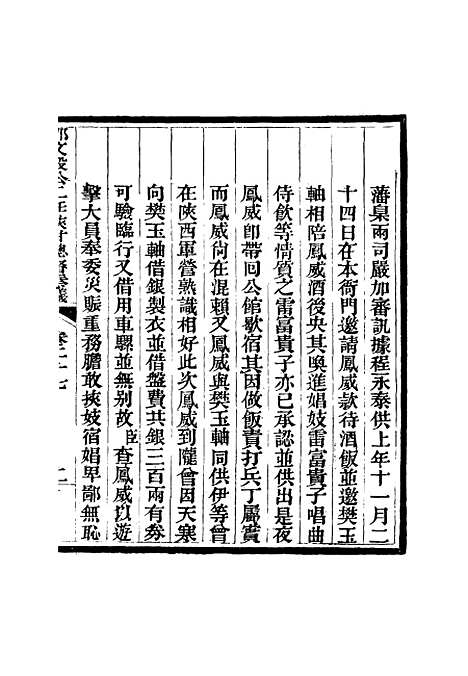 藩臬兩司嚴加審訊據程永泰供上年十一月二
十四日在本衙門邀請鳳威款待酒飯並邀樊玉
軸相陪鳳威酒後央其喚進娼妓雷富貴子唱曲
侍飲等情質之雷富貴子亦已承認並供出是夜
鳳威卽帶回公館歇宿其因做飯責打兵丁屬實
而鳳威尙在混賴又鳳威與樊玉軸同供伊等曾
在陝西軍營熟識相好此次鳳威到隴曾因天寒
向樊玉軸借銀製衣並借盤費共銀三百兩有劵
可驗臨行又借用車騾並無別故臣查鳳威以遊
擊大員奉委災賑重務膽敢挾妓宿娼卑鄙無恥